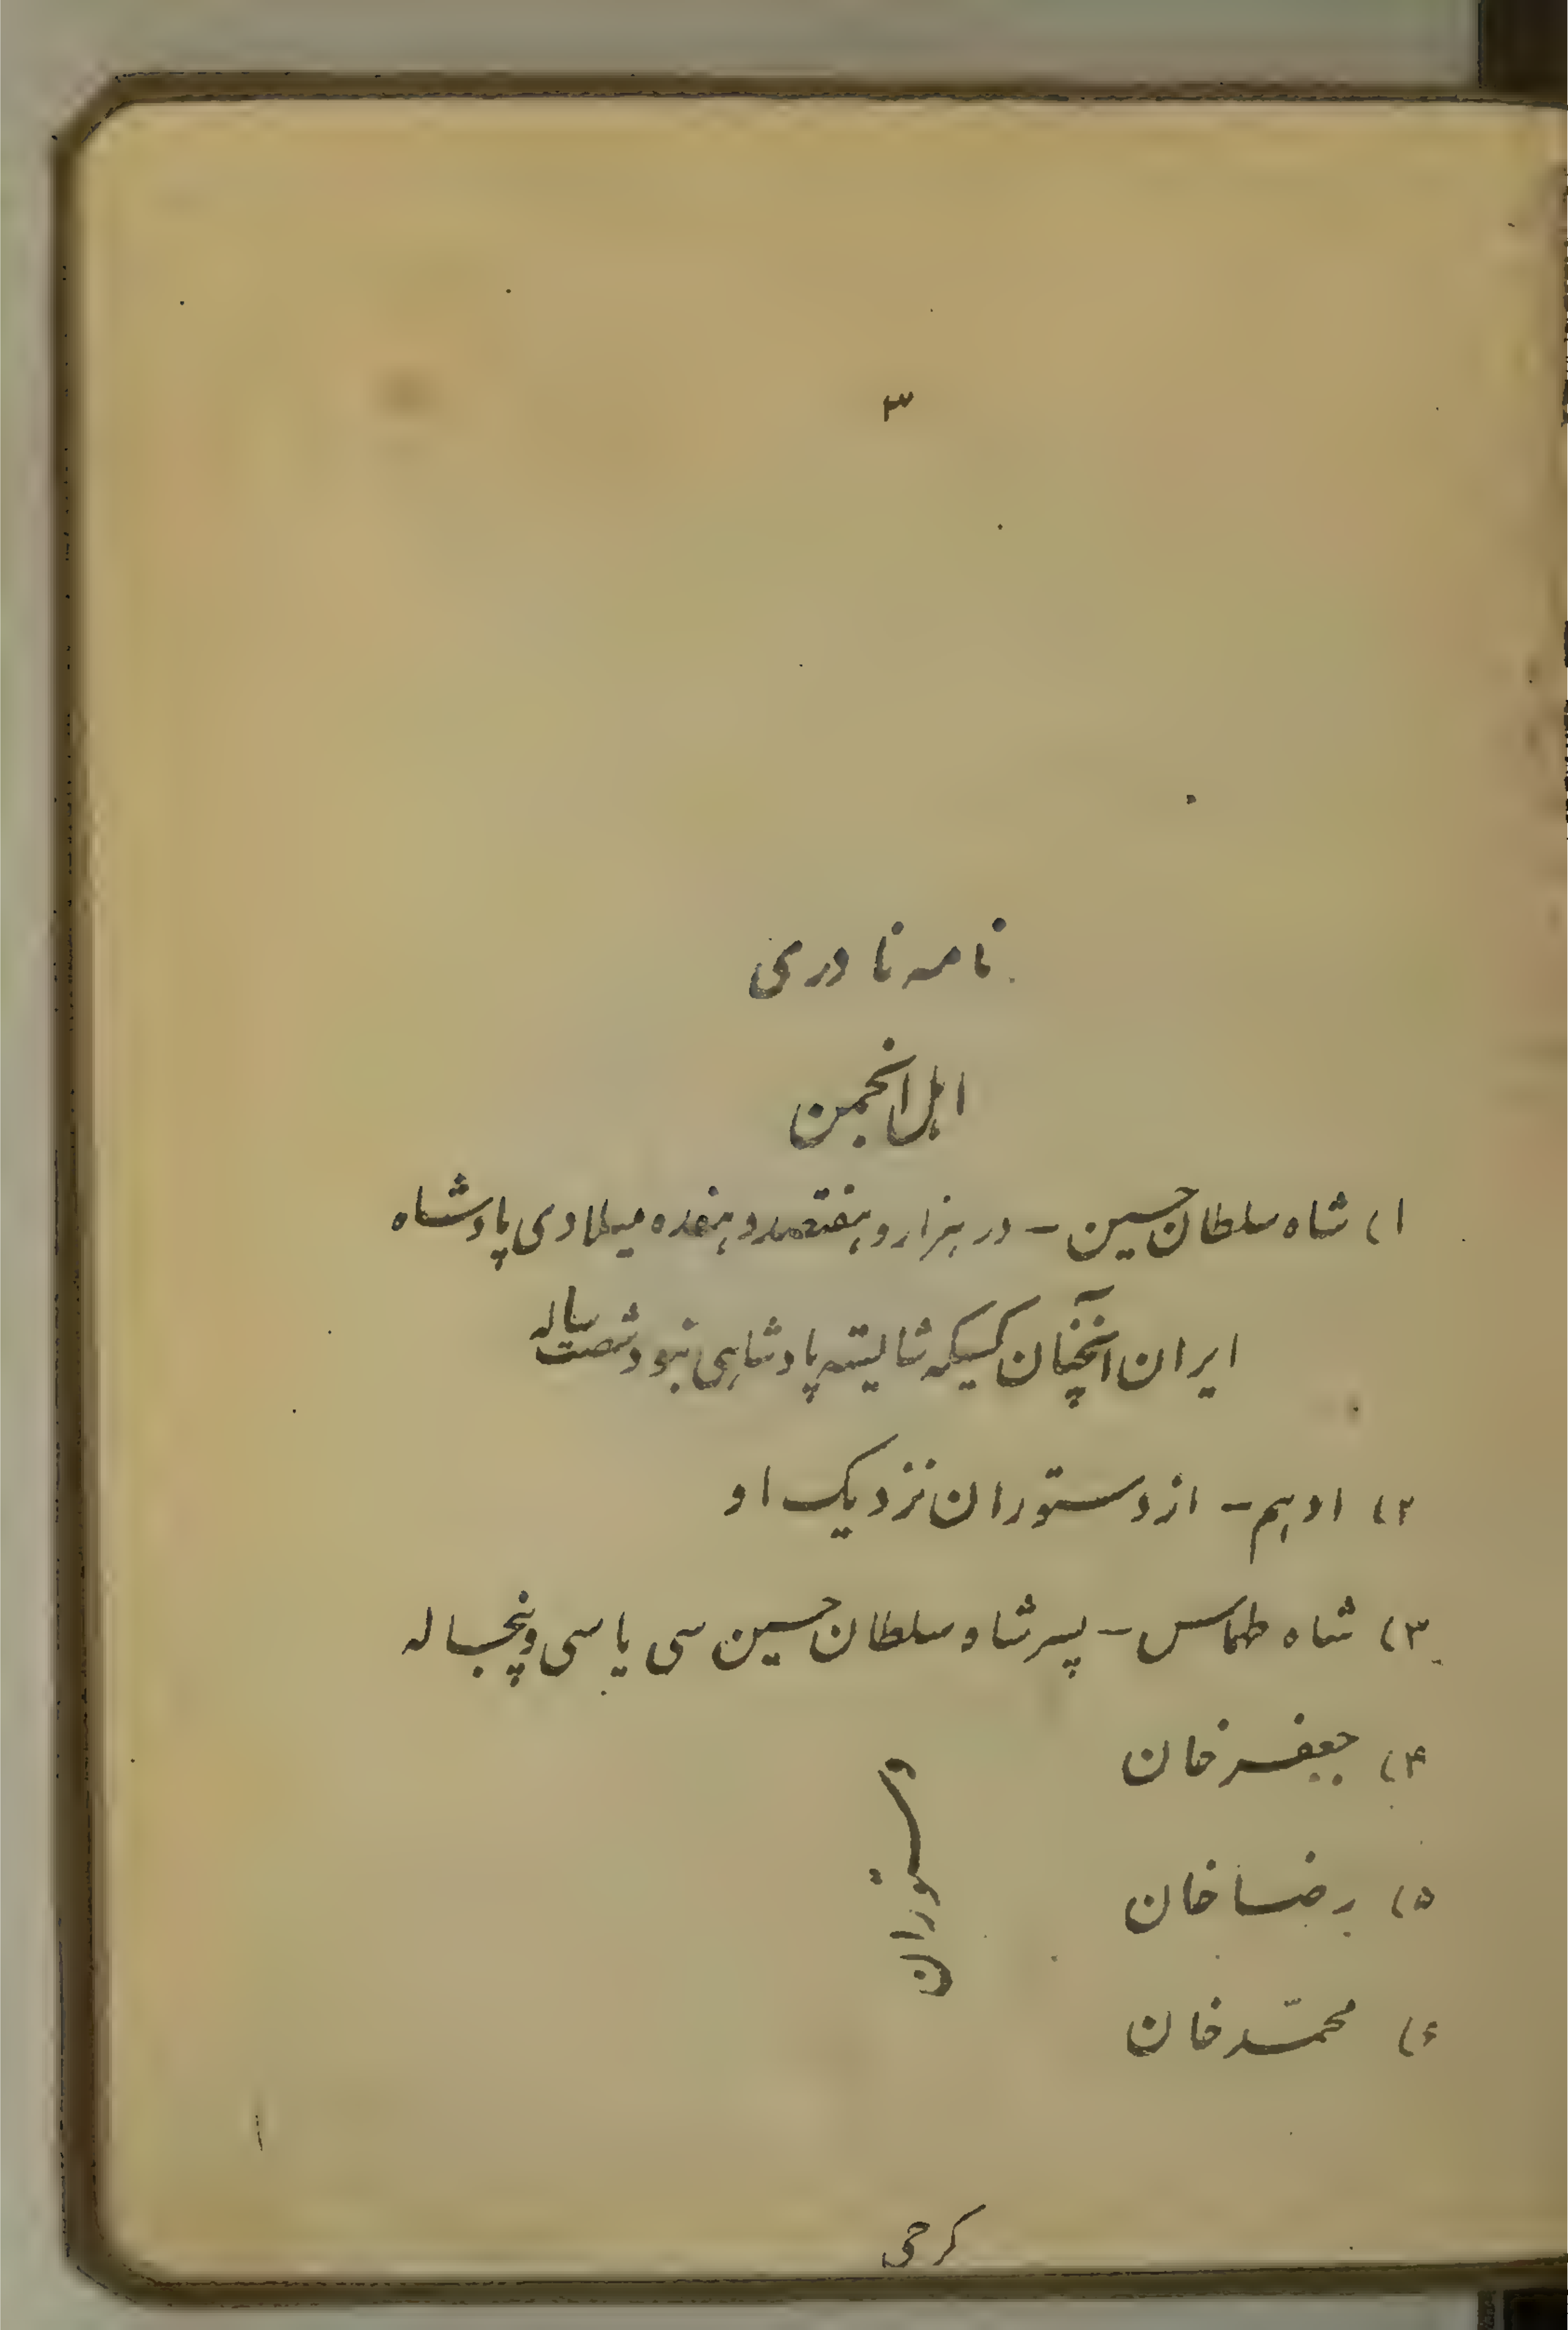 ۳
نامه نادری
اهل انجمن
۱) شاه سلطان حسین – در هزار و هفتصد و هفده میلادی پادشاه
ایران آنچنان کسیکه شایسته پادشاهی نبود شصت ساله
۲) ادهم – از دستوران نزدیک او
۳) شاه طهماس – پسر شاه سلطان حسین سی یا سی و پنجساله
۴) جعفر خان
۵) رضا خان
۶) محمّد خان
دستوران